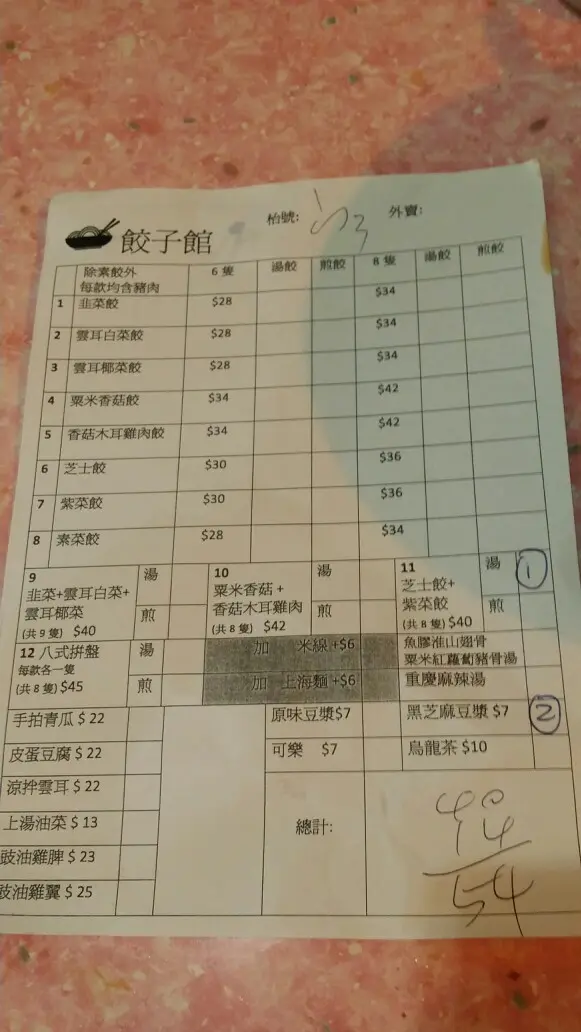 枱號: 外賣:
餃子館
除素餃外 6 隻 湯餃 煎餃 8 隻 湯餃 煎餃
每款均含豬肉
1 韭菜餃 $28 $34
2 雲耳白菜餃 $28 $34
3 雲耳椰菜餃 $28 $34
4 粟米香菇餃 $34 $42
5 香菇木耳雞肉餃 $34 $42
6 芝士餃 $30 $36
7 紫菜餃 $30 $36
8 素菜餃 $28 $34
9 湯 10 湯 11 湯 1
韭菜+雲耳白菜+ 粟米香菇 + 芝士餃+
雲耳椰菜 煎 香菇木耳雞肉 煎 紫菜餃 煎
(共 9 隻) $40 (共 8 隻) $42 (共 8 隻) $40
12 八式拼盤 湯 加 米線 +$6 魚膠淮山翅骨
每款各一隻 粟米紅蘿蔔豬骨湯
(共 8 隻) $45 煎 加 上海麵 +$6 重慶麻辣湯
手拍青瓜 $ 22 原味豆漿$7 黑芝麻豆漿 $7 2
皮蛋豆腐 $ 22 可樂 $7 烏龍茶 $10
涼拌雲耳 $ 22
上湯油菜 $ 13 總計:
豉油雞脾 $ 23
豉油雞翼 $ 25
54